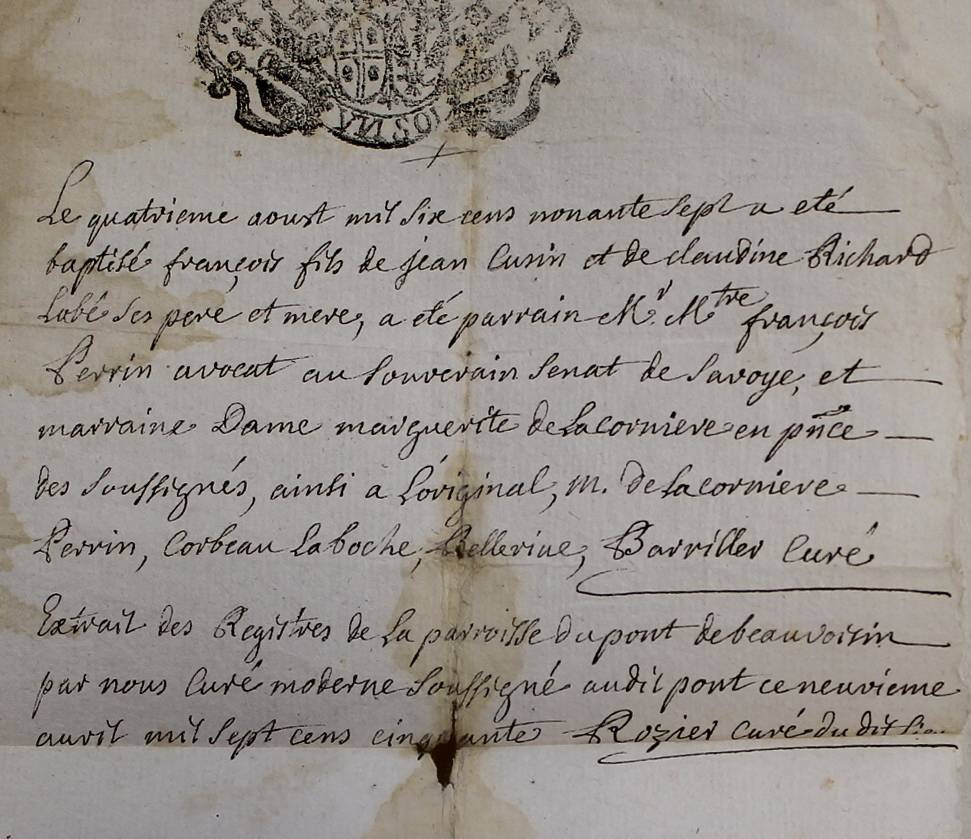 VN SOL
Le quatrieme aoust mil six cens nonante sept a eté
baptisé françois fils de jean Cusin et de claudine Richard
Labé ses pere et mere, a eté parrain Mr. Mtre françois
Perrin avocat au Souverain Senat de Savoye, et
marraine Dame marguerite de Lacorniere en pnce
des soussignés, ainsi a L'original, m. de Lacorniere
Perrin, Corbeau Laboche, Barriller Curé
Extrait des Registres de La parroisse du pont de beauvoisin
par nous Curé moderne Soussigné audit pont ce neuvieme
avril mil sept cens cinquante Rozier Curé du dit